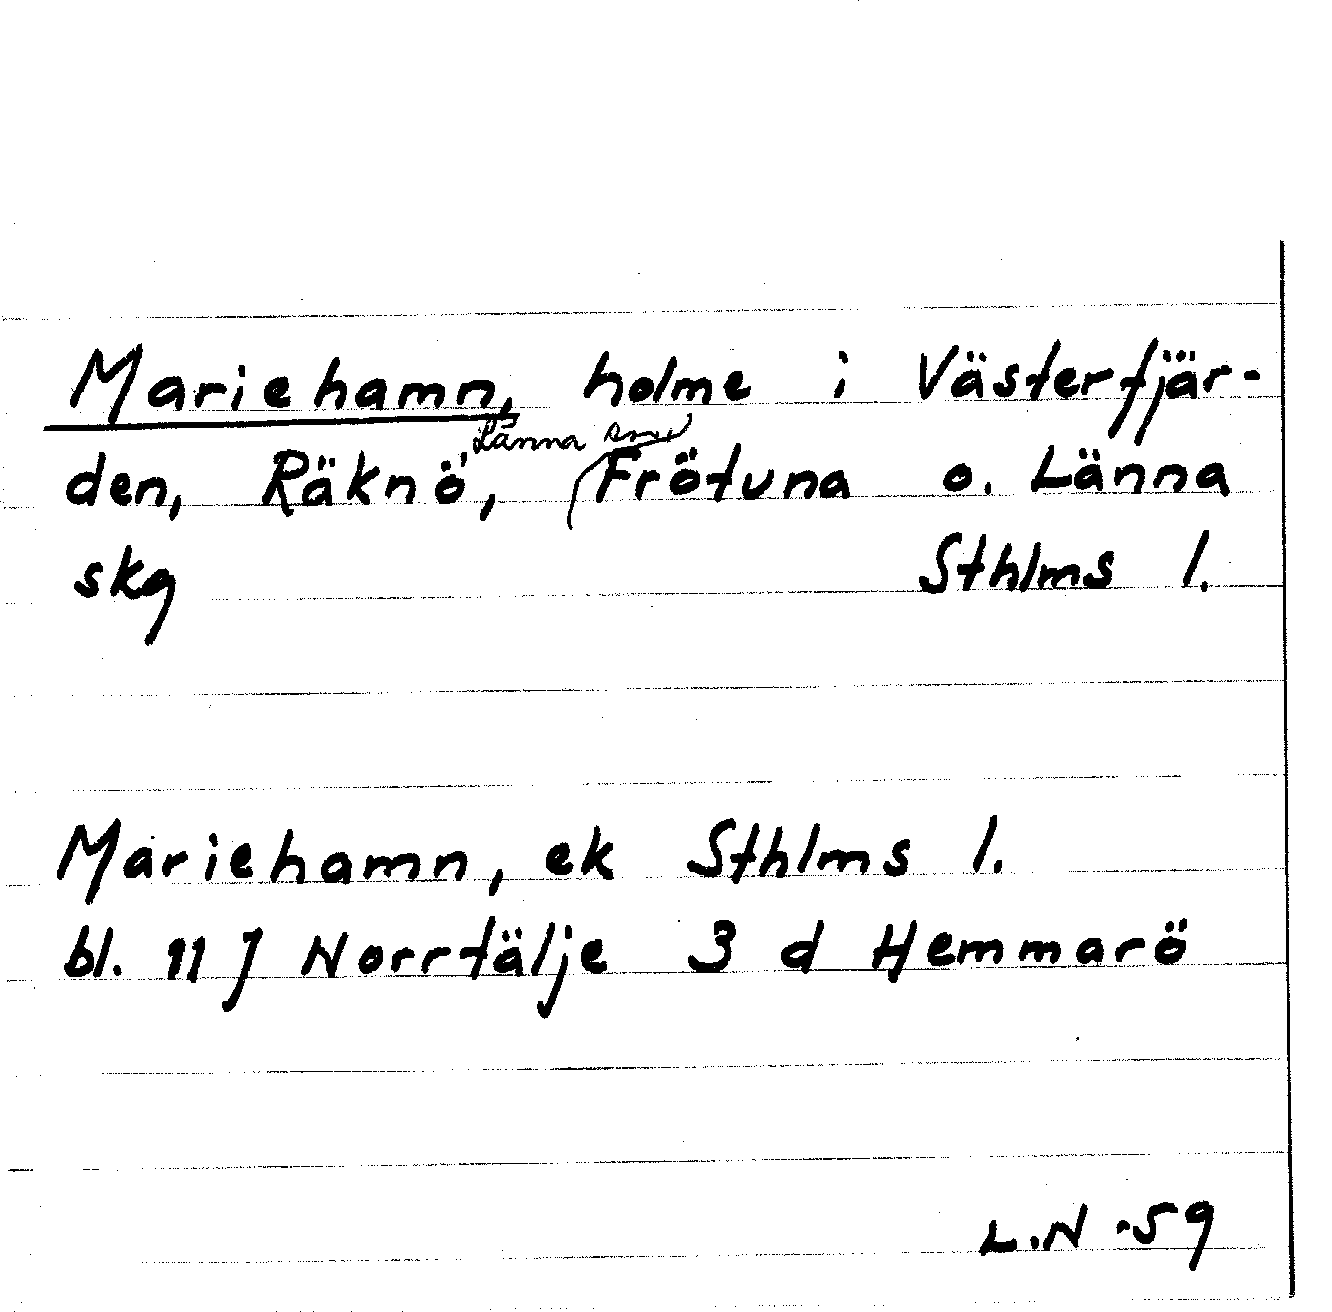 Mariehamn, holme i Västerfjär-
Länna sn,
den, Räknö, Frötuna o. Länna
skg Sthlms l.
Mariehamn, ek Sthlms l.
bl. 11 J Norrtälje 3 d Hemmarö
L.N -59